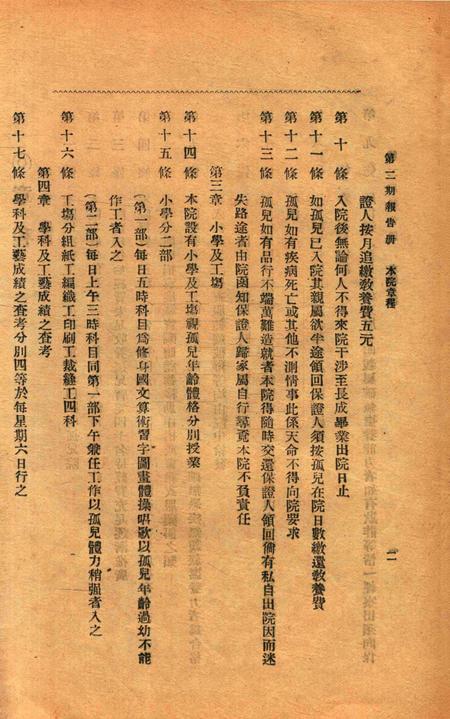 第二期報告册 本院章程 二
證人按月追繳教養費五元
第十條 入院後無論何人不得來院干涉至長成畢業出院日止
第十一條 如孤兒已入院其親屬欲半途領回保證人須按孤兒在院日數繳還教養費
第十二條 孤兒如有疾病死亡或其他不測情事此係天命不得向院要求
第十三條 孤兒如有品行不端萬難造就者本院得隨時交還保證人領回倘有私自出院因而迷
失路途者由院函知保證人歸家屬自行尋覓本院不負責任
第三章 小學及工塲
第十四條 本院設有小學及工塲視孤兒年齡體格分別授業
第十五條 小學分二部
(第一部)每日五時科目爲修身國文算術習字圖畫體操唱歌以孤兒年齡過幼不能
作工者入之
(第二部)每日上午三時科目同第一部下午兼任工作以孤兒體力稍强者入之
第十六條 工塲分組紙工編織工印刷工裁縫工四科
第四章 學科及工藝成績之查考
第十七條 學科及工藝成績之查考分別四等於每星期六日行之